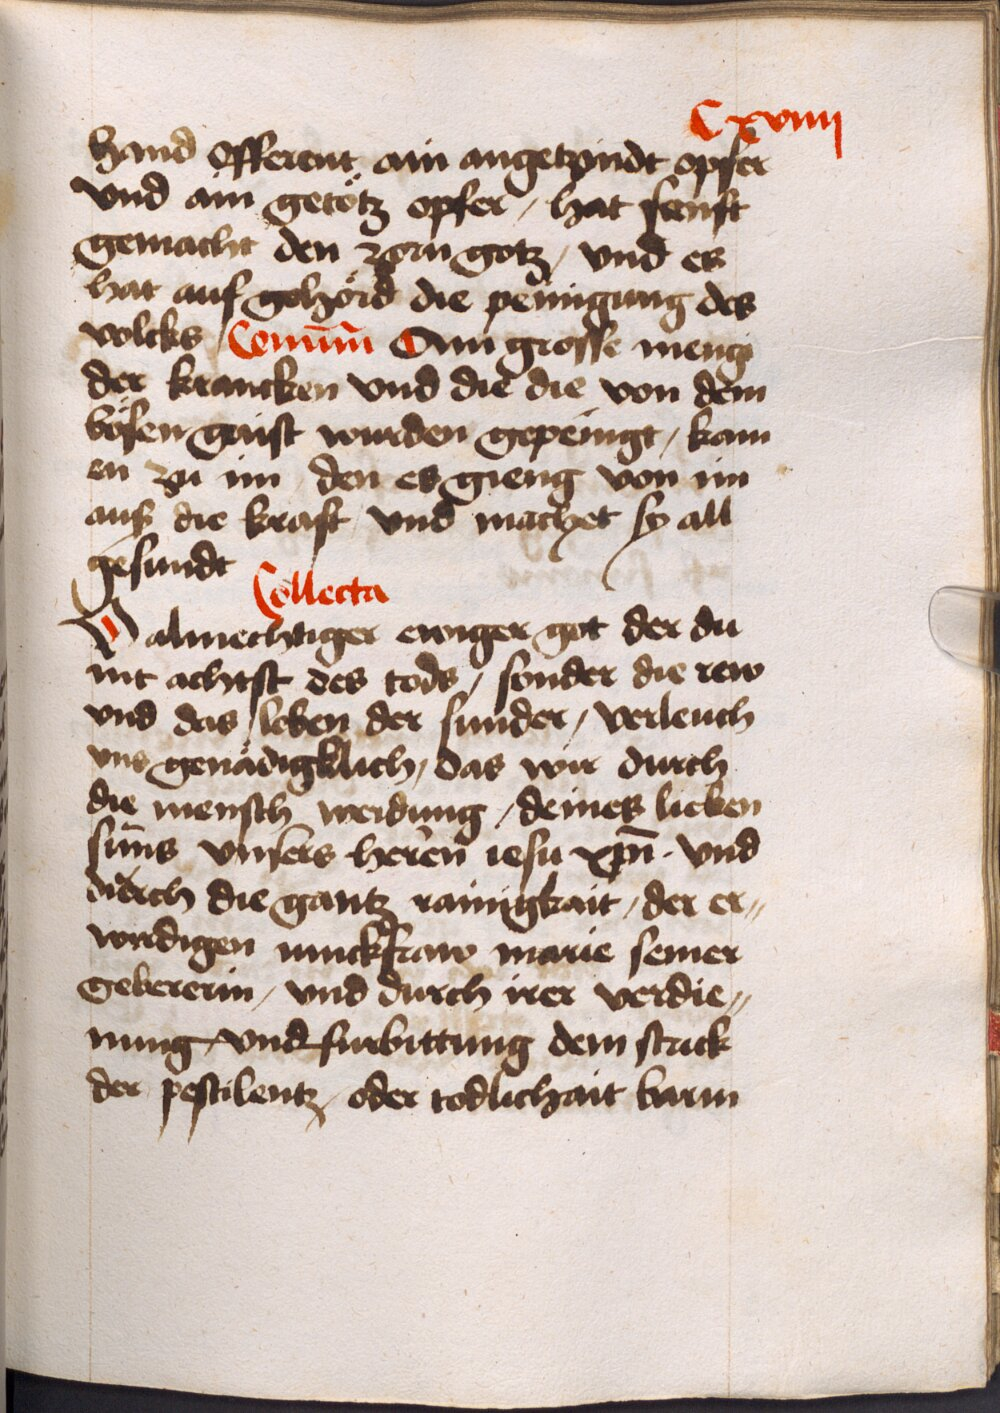 Cxviiij
hand offerent ain angetzindt opfer
vnd ain getötz opfer / hat senft
gemacht den zorn gotz / vnd es
hat auf gehörd die peinigung des
volcks Comūm̄ Ain grosse mengi
der krancken vnd die die von dem
bösen gaist wurden gepeingt / kam
en zu im / den es gieng von im
auß die kraft / vnd machet sy all
gesundt
Collecta
O almechtiger ewiger got der du
nit achtst des tods / sonder die rew
vnd das leben der sunder / verleuch
vns genädigklich / das wir durch
die mensch werdung / deines lieben
suns vnsers heren iesu xp̄ī . vnd
durch die gantz rainigkait / der er⸗
wirdigen iunckfraw marie seiner
gebererin / vnd durch irer verdie⸗
nung vnd furbittung dem strick
der pestilentz / oder todlichait barm